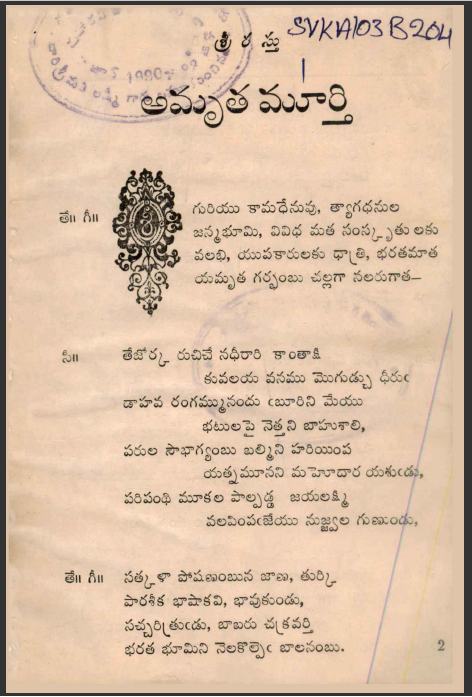 శ్రీ ర స్తు
SVKA103 B204
1
అమృత మూర్తి
తే॥ గీ॥
శ్రీ గురియు కామధేనువు, త్యాగధనుల
జన్మభూమి, వివిధ మత సంస్కృతులకు
వలభి, యుపకారులకు ధాత్రి, భరతమాత
యమృత గర్భంబు చల్లగా నలరుగాత—
సీ॥ తేజోర్క రుచిచే నధీరారి కాంతాక్షి
కువలయ వనము మొగుడ్చు ధీరుఁ
డాహవ రంగమ్మునందు ఁబూరిని మేయు
భటులపై నెత్తని బాహుశాలి,
పరుల సౌభాగ్యంబు బల్మిని హరియింప
యత్నమూనని మహోదార యశుఁడు,
పరిపంథి మూకల పాల్పడ్డ జయలక్ష్మి
వలపింపఁజేయు నుజ్జ్వల గుణుండు,
తే॥ గీ॥ సత్కళా పోషణంబున జాణ, తుర్కి
పారశీక భాషాకవి, భావుకుండు,
సచ్చరిత్రుఁడు, బాబరు చక్రవర్తి
భరత భూమిని నెలకొల్పెఁ బాలనంబు.
2